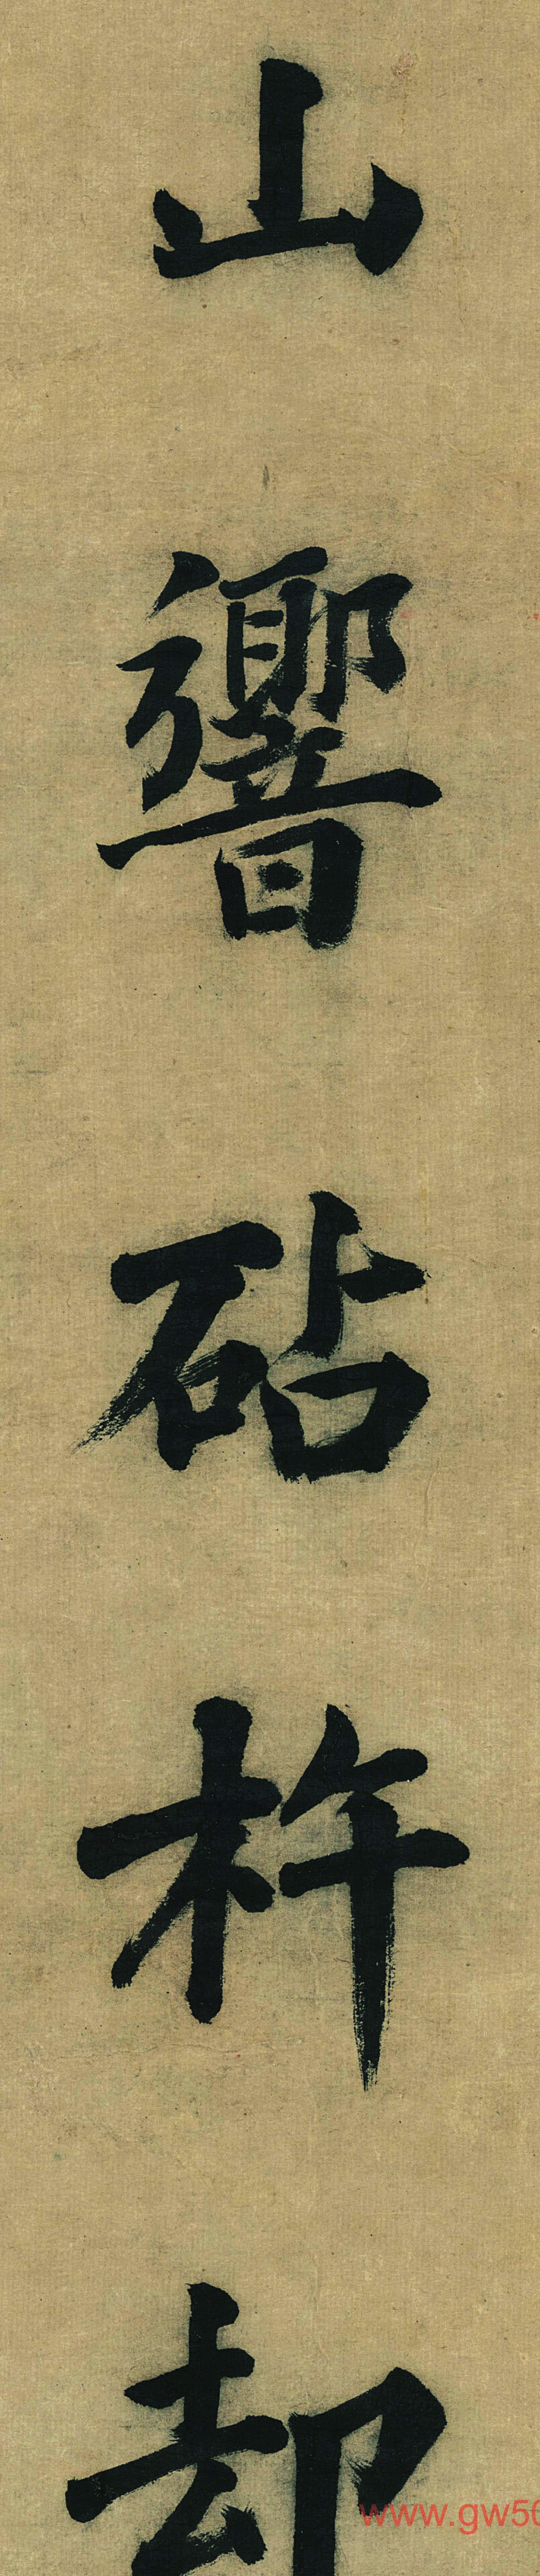 山響砧杵却
www.gw50